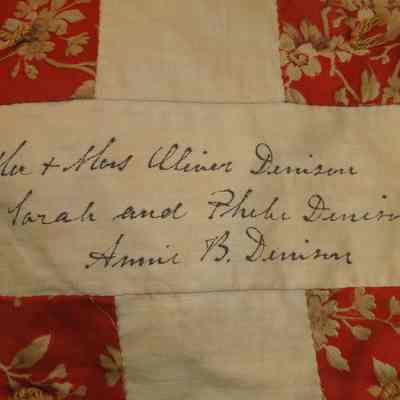 Mr + Mrs Oliver Denison
Sarah and Phebe Denison
Annie B. Denison